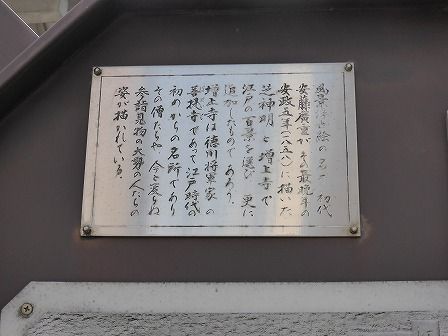 風景浮世絵の名手 初代
安藤廣重が その最晩年の
安政五年(一八五八)に描いた
芝神明と増上寺で
江戸の百景を選び 更に
追加したもので あろう。
増上寺は徳川将軍家の
菩提寺であって江戸時代の
初めからの名所であり
その僧たちや、今と変らぬ
参詣見物の大勢の人たちの
姿が描かれている。